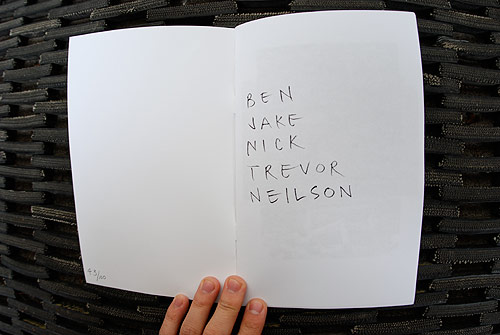 BEN
JAKE
NICK
TREVOR
NEILSON
43/100